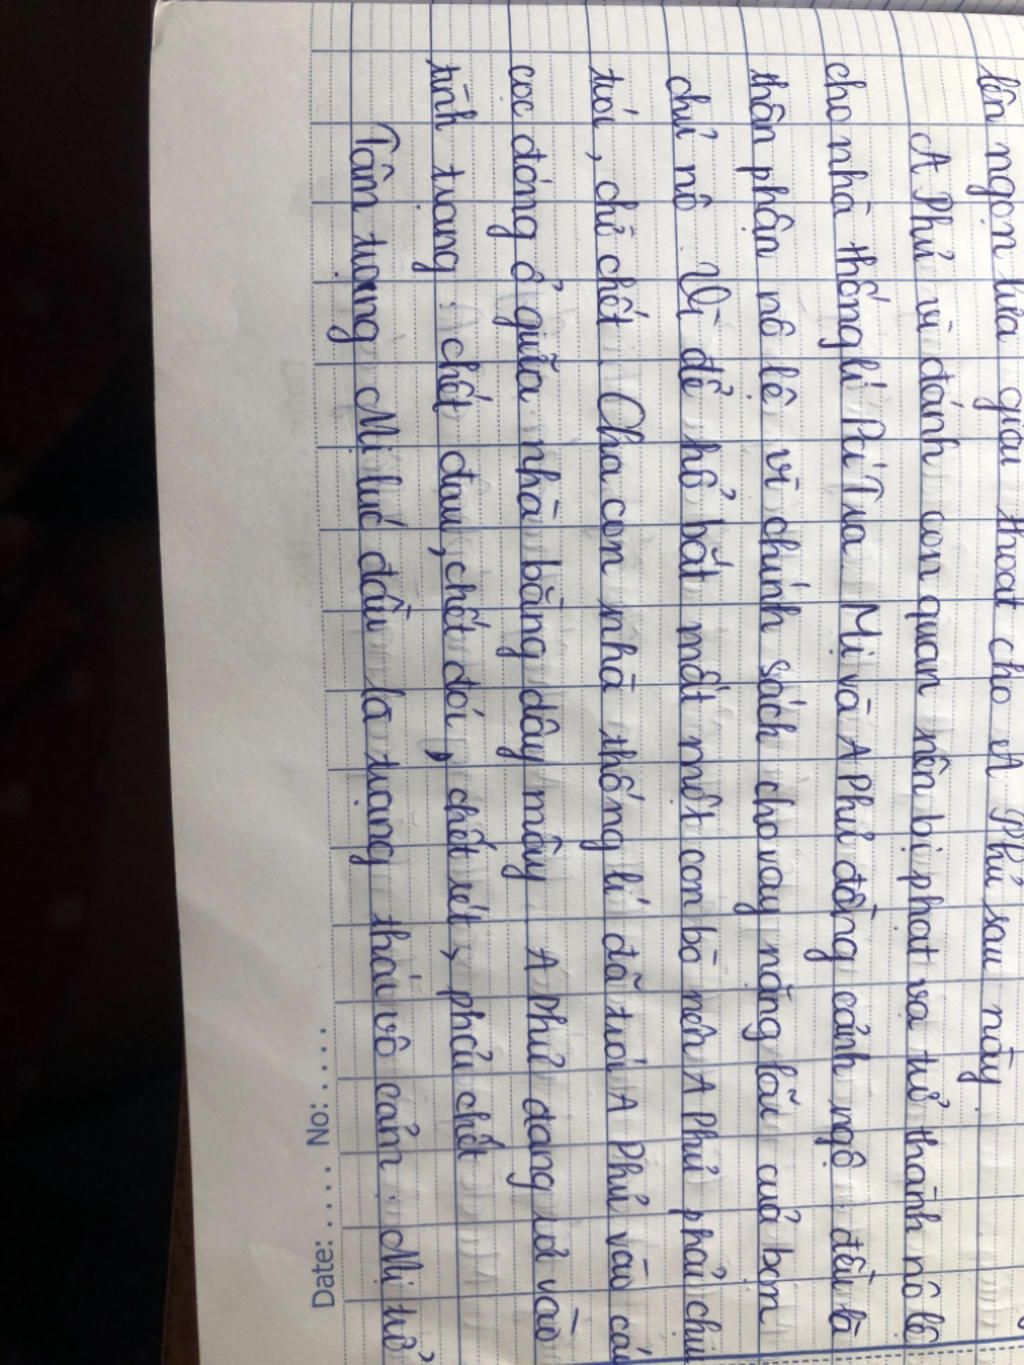 lên ngọn lửa giải thoát cho A Phủ sau này.
A Phủ vì đánh con quan nên bị phạt vạ trở thành nô lệ
cho nhà thống lí Pá Tra. Mị và A Phủ đồng cảnh ngộ đều là
thân phận nô lệ vì chính sách cho vay nặng lãi của bọn
chủ nô. Vì để hổ bắt mất một con bò nên A Phủ phải chịu
trói, chờ chết. Cha con nhà thống lí đã trói A Phủ vào cái
cọc đóng ở giữa nhà bằng dây mây. A Phủ đang rơi vào
tình trạng: chết đau, chết đói, chết rét, phải chết
Tâm trạng Mị lúc đầu là trạng thái vô cảm. Mị trở
Date: ..... No: .....